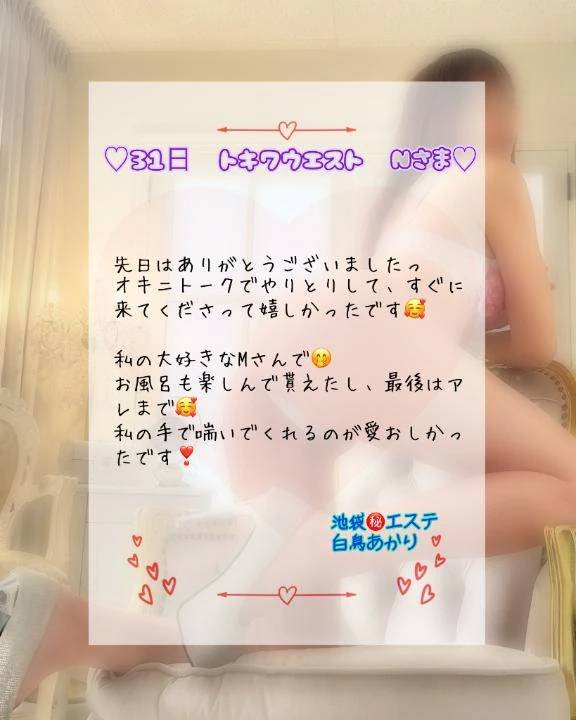 ♡31日 トキワウエスト Nさま♡
先日はありがとうございましたっ
オキニトークでやりとりして、すぐに
来てくださって嬉しかったです🥰
私の大好きなMさんで🤭
お風呂も楽しんで貰えたし、最後はア
レまで🥰
私の手で喘いでくれるのが愛おしかっ
たです❣️
池袋㊙️エステ
白鳥あかり